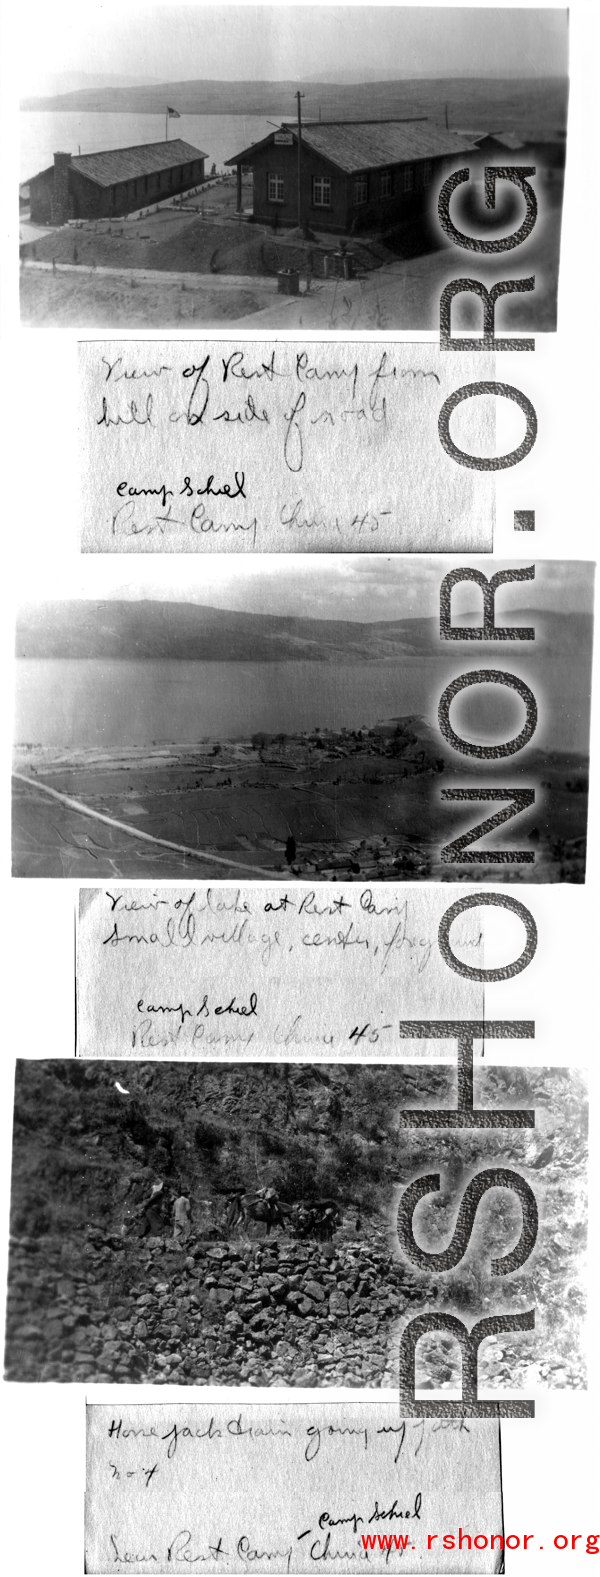 View of Rest Camp from
hill on side of road
Camp Schiel
Rest Camp China 45
View of lake at Rest Camp
Small village, center,
Camp Schiel
Rest Camp China 45
Horse pack train going up path
No 4
Camp Schiel
Near Rest Camp - China 45.
www.rshonor.org
RSHONOR.ORG